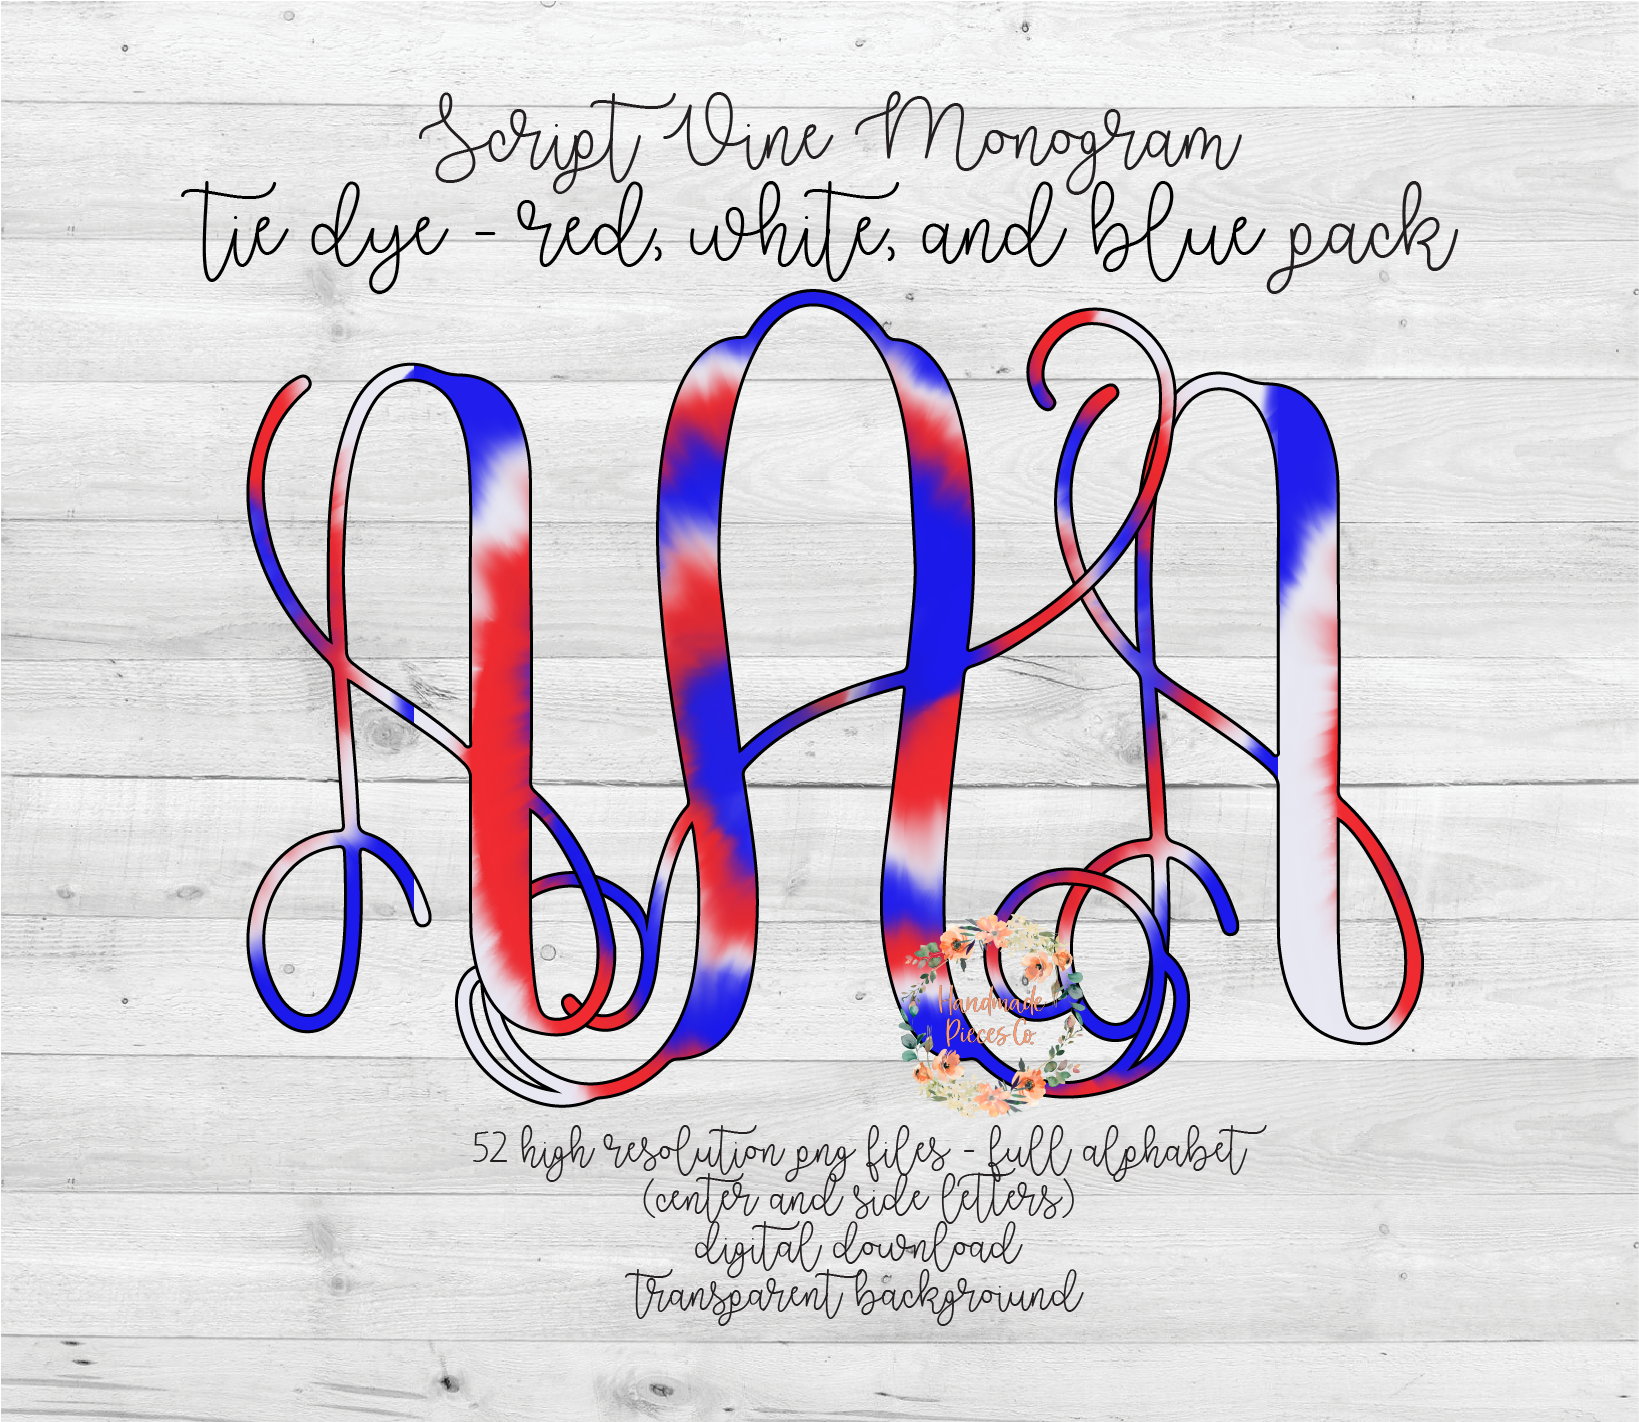 Script Vine Monogram
tie dye - red, white, and blue pack
AAA
Handmade
Pieces Co.
52 high resolution png files - full alphabet
(center and side letters)
digital download
transparent backgroiund